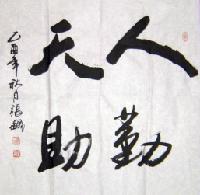 人勤
天助
乙酉年秋月张